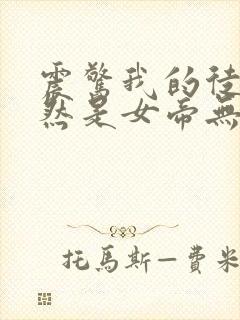 震驚我的徒
然是女帝無
托馬斯—費米